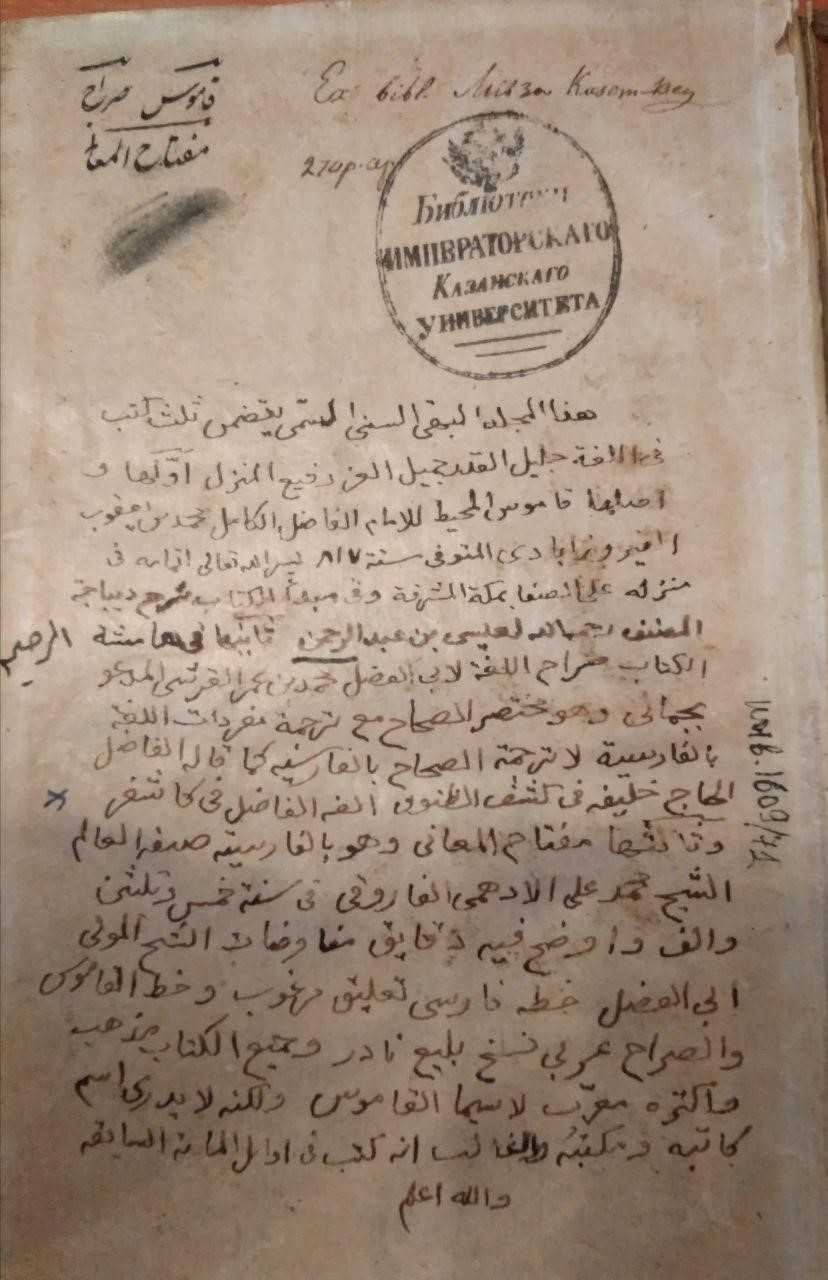 قاموس صراح
مفتاح المعا
Ex bibl. Mirza Kasem-Beg
270 р. ар
Библиотека
ИМПЕРАТОРСКАГО
КАЗАНСКАГО
УНИВЕРСИТЕТА
هذا المجلد السنى يتضمن ثلث كتب
فى اللغة جليل القدر جميل رفيع المنزل اوّلها و
قاموس المحيط للامام الفاضل الكامل محمد بن يعقوب
الفيروزابادى المتوفى سنة ٨١٧ يسر الله تعالى اتمامه فى
منزله على الصفا بمكة المشرفة وفى مبدأ الكتاب شرح ديباجة
المصنف رحمه الله لعيسى بن عبد الرحمن ثانيها فى هامشة
الرحيم
الكتاب صراح اللغة لابى الفضل محمد بن عمر القرشى المدعو
بجمالى وهو مختصر الصحاح مع ترجمة مفردات اللغة
بالفارسية لا ترجمة الصحاح بالفارسيه كما قاله الفاضل
الحاج خليفه فى كشف الظنون الفه الفاضل فى كاشغر
وثالثها مفتاح المعانى وهو بالفارسية صنفه العالم
الشيخ محمد على الادهمى الفاروقى فى سنة خمس وثلثين
والف واوضح فيه دقايق مفاوضات الشيخ المولى
ابى الفضل خطه فارسى تعليق مرغوب وخط القاموس
والصراح عربى نسخ بليغ نادر وجميع الكتاب مذهب
واكثره معرّب لاسيما القاموس ولكنه لا يدرى اسم
كاتبه ومكتبه والغالب انه كتب فى اوايل المائة السابقه
والله اعلم
инв. 1609/72